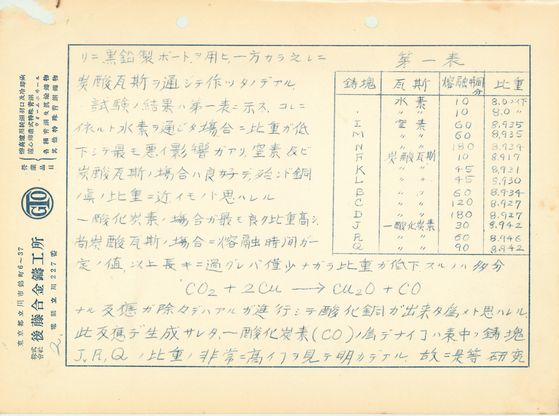 リニ黒鉛製ボートヲ用ヒ一方カラ之レニ
炭酸瓦斯ヲ通シテ作ツタノデアル
試験ノ結果ハ第一表ニ示ス、コレニ
依ルト水素ヲ通ジタ場合ニ比重ガ低
下シテ最モ悪イ影響ガアリ、窒素及ビ
炭酸瓦斯ノ場合ハ良好デ殆ンド銅
ノ眞ノ比重ニ近イモノト思ハレル
一酸化炭素ノ場合ガ最モ良ク比重高シ
尚炭酸瓦斯ノ場合ニ熔融時間ガ一
定ノ値以上長キニ過グレバ僅少ナガラ比重ガ低下スルノハ多分
CO2 + 2Cu → Cu2O + CO
ナル反應ガ除々デハアルガ進行シテ酸化銅ガ出来タ為メト思ハレル
此反應デ生成サレタ一酸化炭素(CO)ノ為デナイコハ素中ノ鋳塊
J, P, Q ノ比重ノ非常ニ高イコヲ見テ明カデアル 故ニ是等研究
第一表
鋳塊 瓦斯 熔融時間分 比重
水素 10 8.0以下
〃 10 8.0〃
I 窒素 60 8.935
〃 60 8.935
M 〃
N 〃 180 8.934
F 炭酸瓦斯 10 8.917
K 〃 45 8.931
A 〃 45 8.930
B 〃 60 8.934
C 〃 120 8.927
D 〃 180 8.927
J 一酸化炭素 30 8.942
P 〃 60 8.946
Q 〃 90 8.942
營業品目
各種青銅鋳物
其他特殊青銅鋳物
GTO
株式会社 後藤合金鑄工所
東京都立川市錦町6~37
電話立川227番
2.